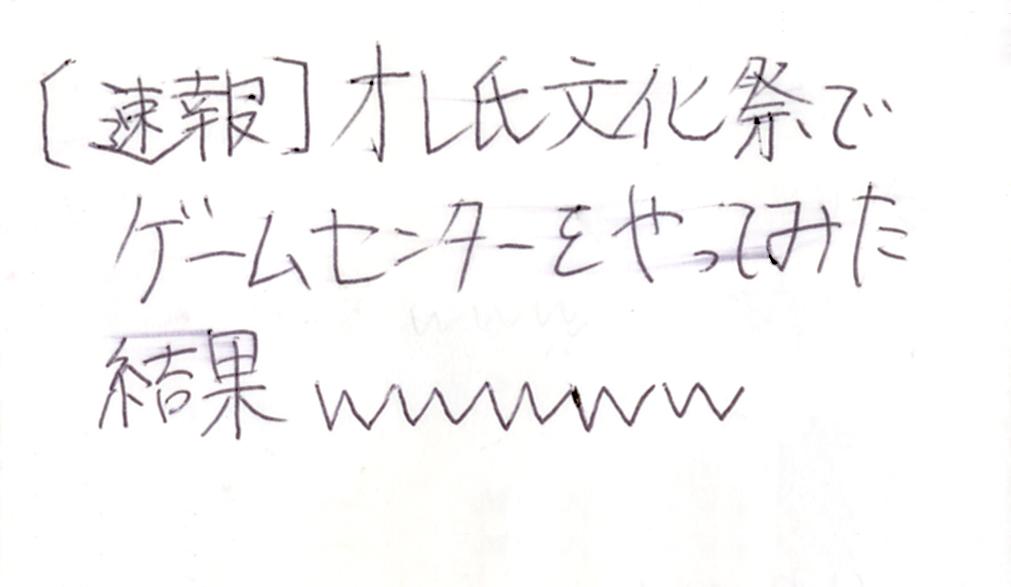 [速報]オレ氏文化祭で
ゲームセンターをやってみた
結果wwwwww